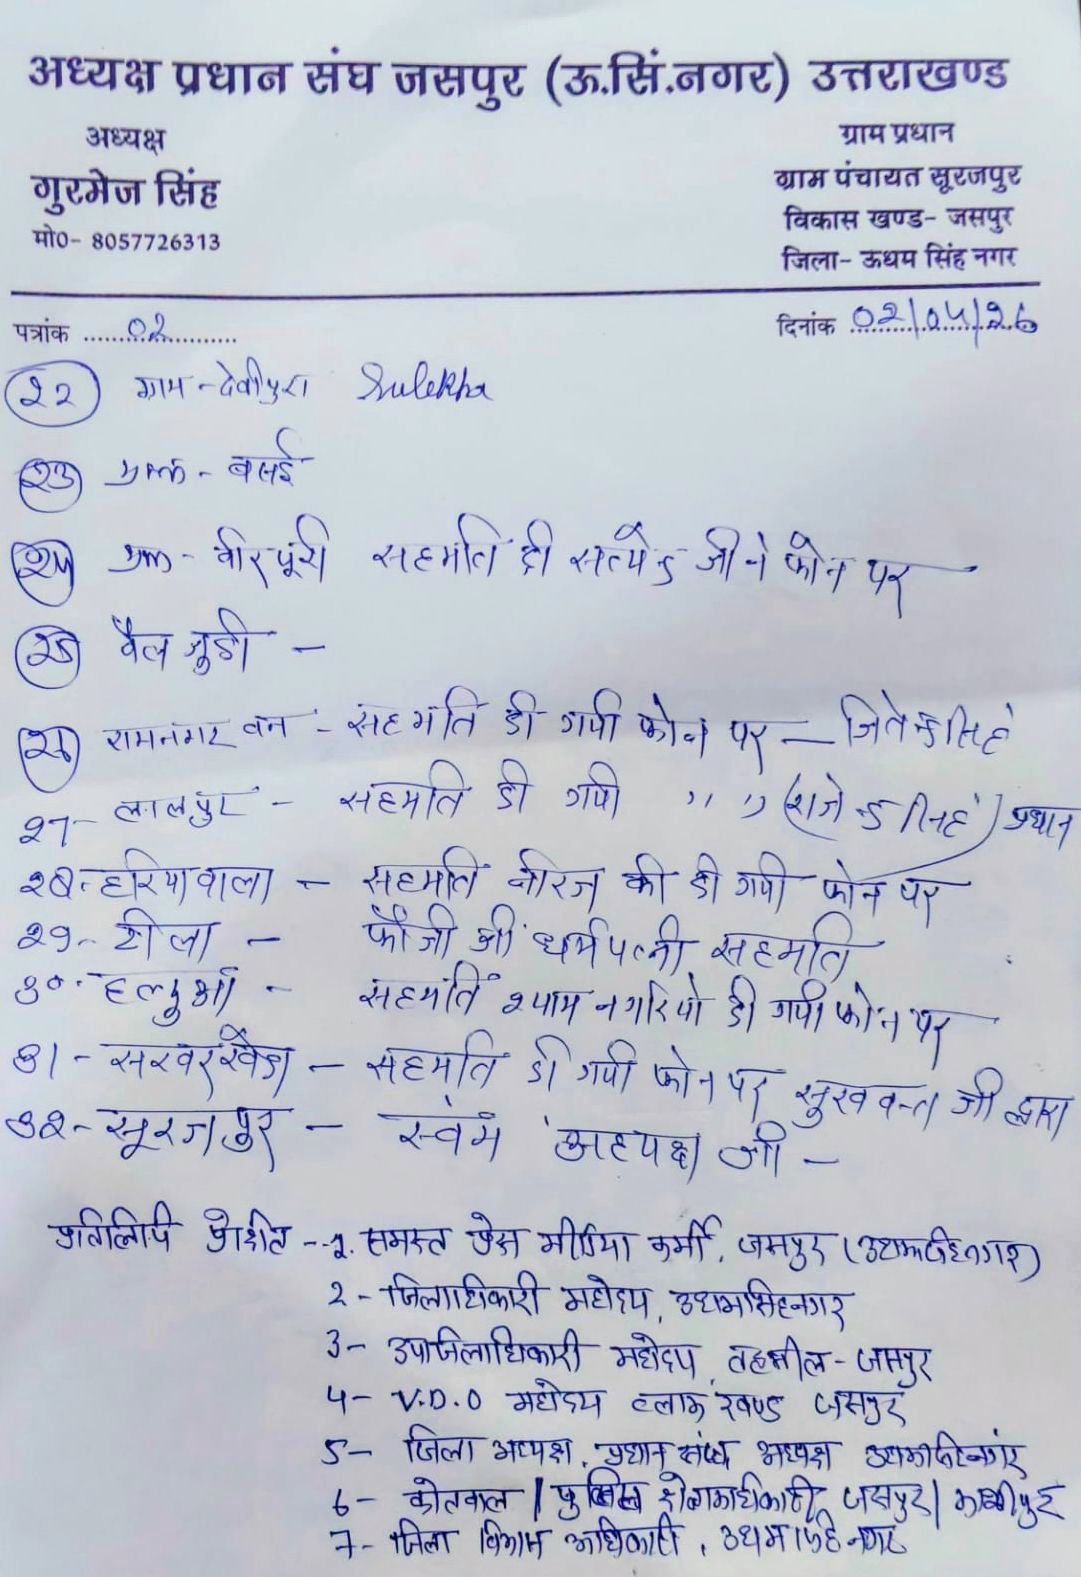 अध्यक्ष प्रधान संघ जसपुर (ऊ.सिं.नगर) उत्तराखण्ड
अध्यक्ष
गुरमेज सिंह
मो0- 8057726313
ग्राम प्रधान
ग्राम पंचायत सूरजपुर
विकास खण्ड- जसपुर
जिला- ऊधम सिंह नगर
पत्रांक 02
दिनांक 02/04/26
22 ग्राम - देवीपुरा Sulekha
23 ग्राम - बसई
24 ग्राम - वीरपूरी सहमति दी सत्येन्द्र जी ने फोन पर
25 वैल जुडी -
26 रामनगर वन - सहमति दी गयी फोन पर - जितेन्द्र सिंह
27 - लालपुर - सहमति दी गयी " " (राजेन्द्र सिंह) प्रधान
28 - हरियावाला - सहमति नीरज की दी गयी फोन पर
29 - टीला - फौजी की धर्मपत्नी सहमति
30 - हल्दुआ - सहमति श्याम दी गयी फोन पर
31 - सरवरखेडा - सहमति दी गयी फोन पर सुखवन्त जी द्वारा
32 - सूरजपुर - स्वंम अध्यक्ष जी -
प्रतिलिपि प्रेषित -- 1. समस्त प्रेस मीडिया कर्मी, जसपुर (उधमसिंहनगर)
2 - जिलाधिकारी महोदय, उधमसिंहनगर
3 - उपजिलाधिकारी महोदय, तहसील - जसपुर
4 - V.D.O महोदय ब्लाक खण्ड जसपुर
5 - जिला अध्यक्ष, प्रधान संघ अध्यक्ष उधमसिंहनगर
6 - कोतवाल / पुलिस क्षेत्राधिकारी, जसपुर / काशीपुर
7 - जिला विकास अधिकारी, उधमसिंहनगर